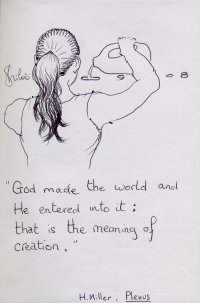 "God made the world and
He entered into it ;
that is the meaning of
creation."
H.Miller , Plexus